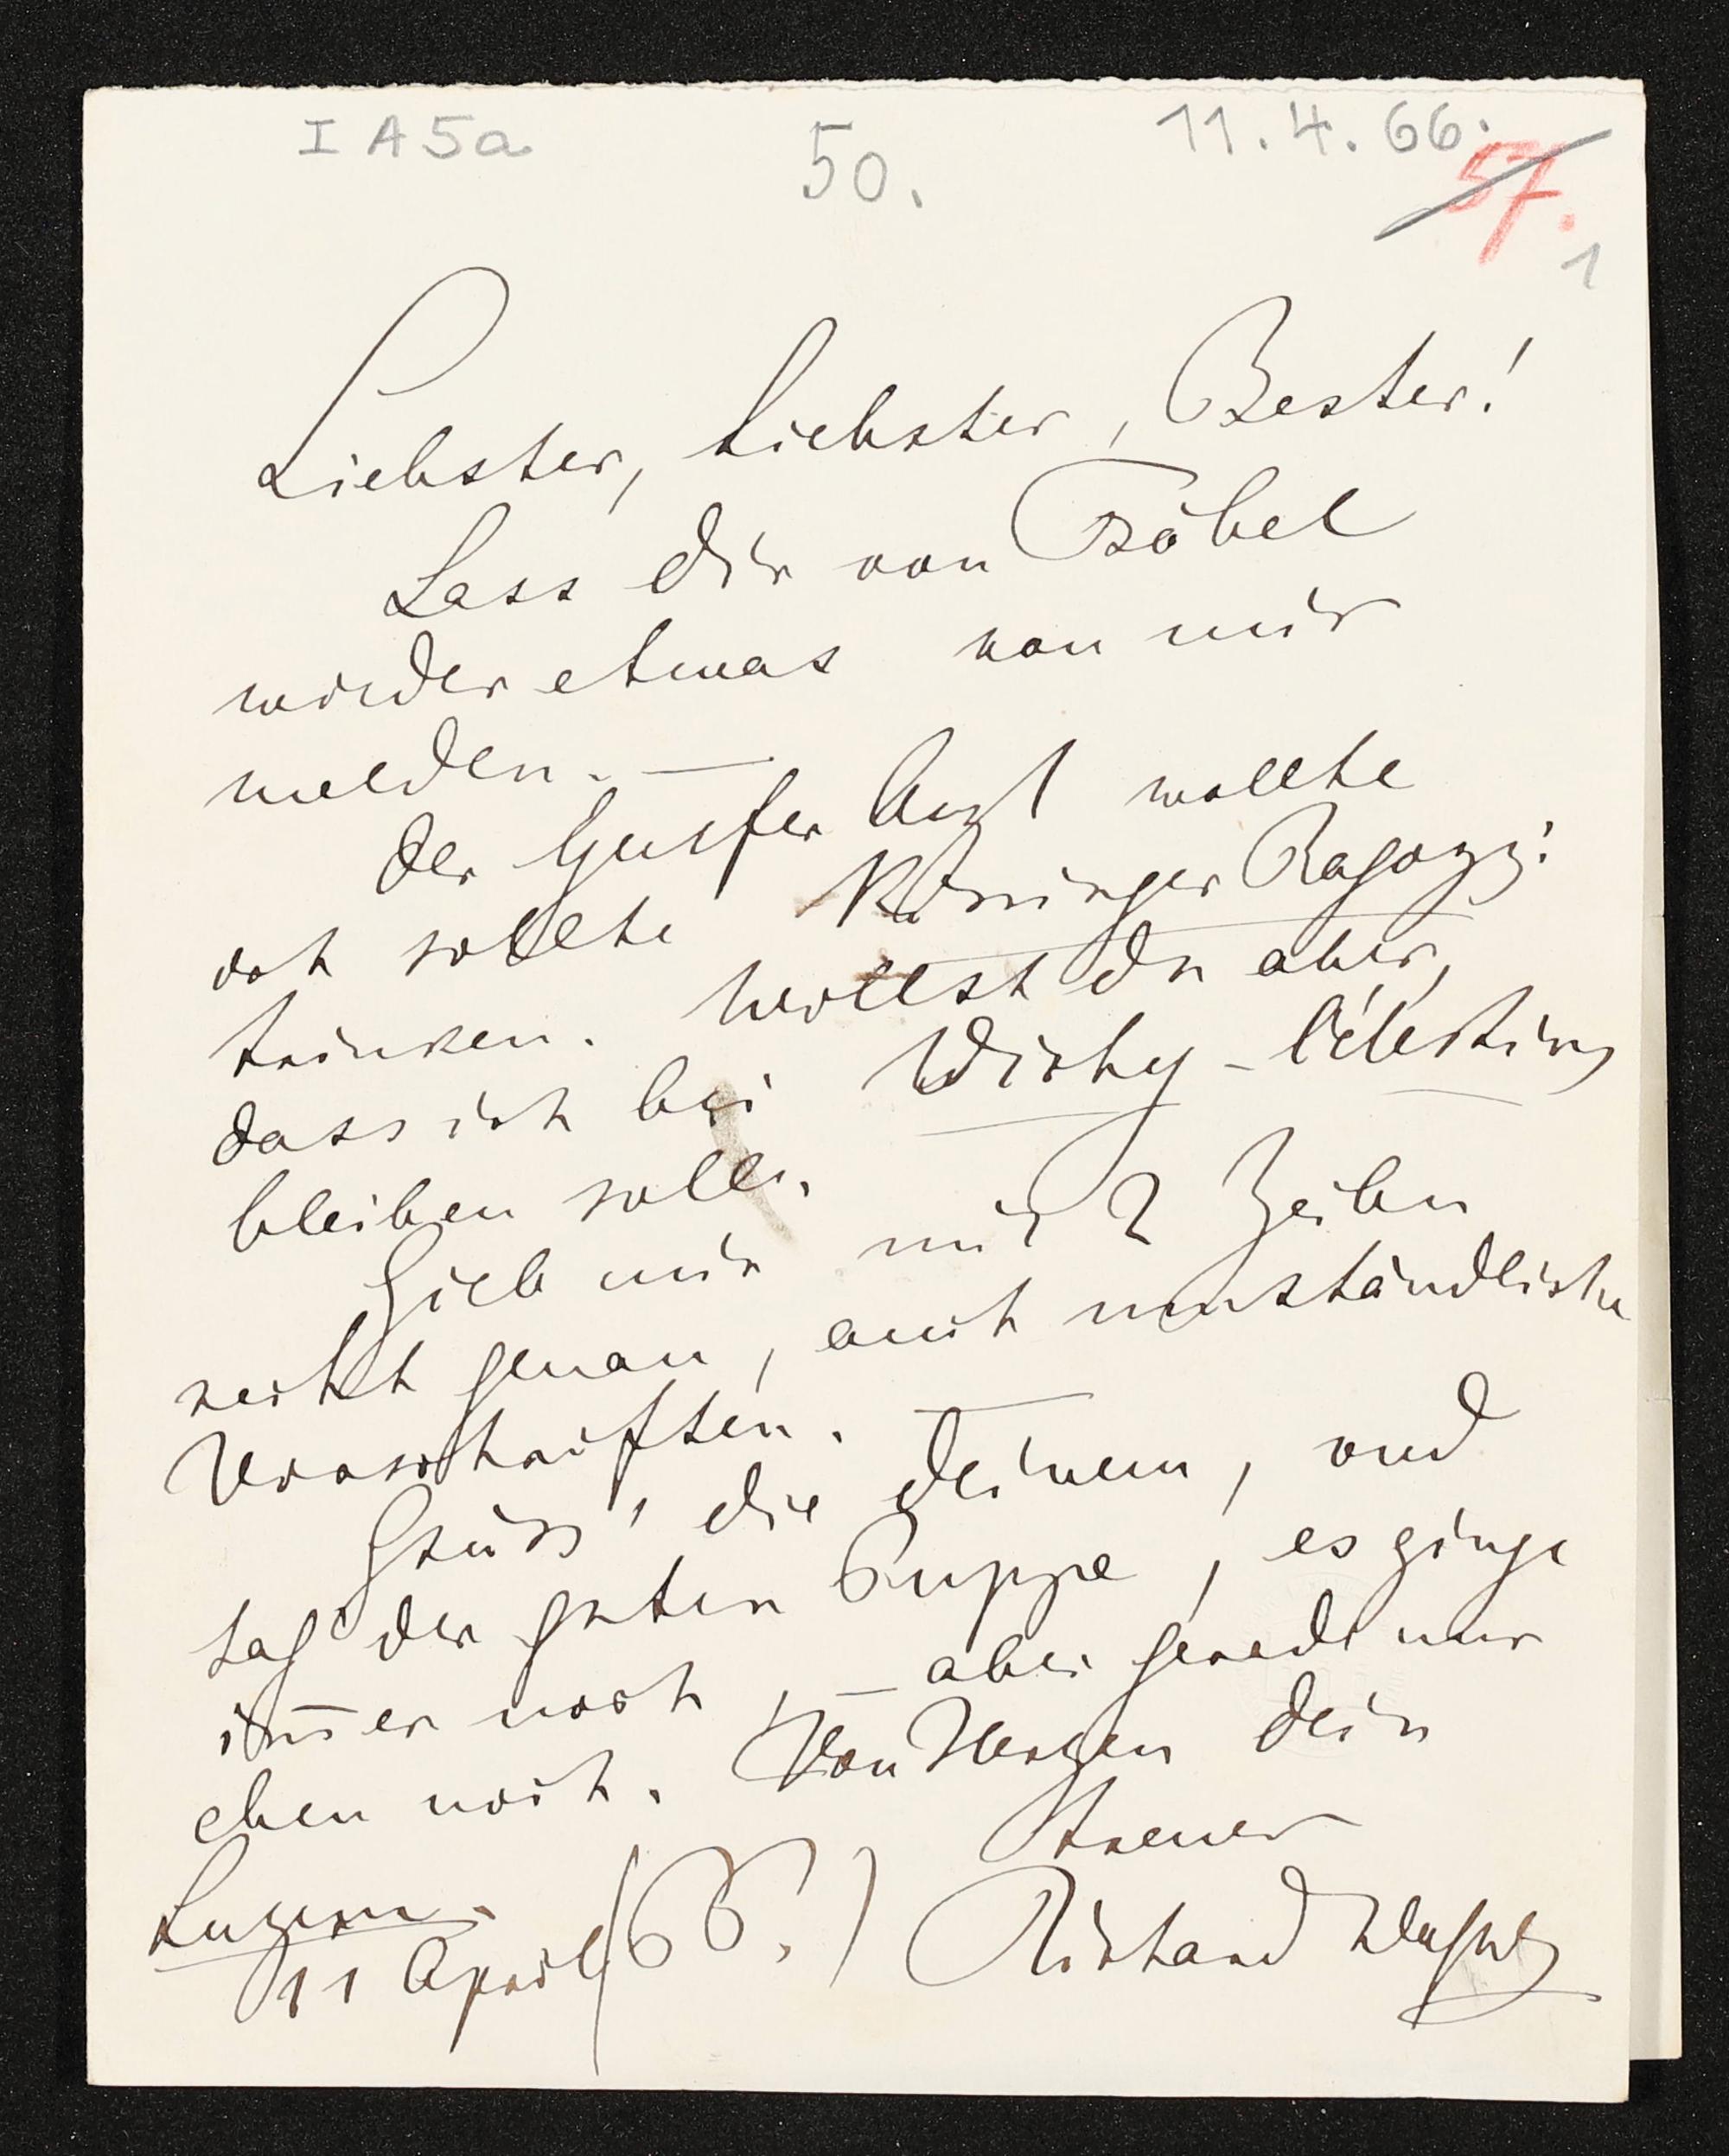 I A 5a
50.
11.4.66.
57.
1
Liebster, Liebster, Bester!
Lass dir von Fröbel
wieder etwas von mir
melden. —
Der Genfer Arzt wollte
ich sollte Kissinger Ragozzi
trinken. Wolltest du aber,
dass ich bei Vichy-Célestins
bleiben solle.
Gieb mir mit 2 Zeilen
recht genau, auch umständliche
Vorschriften. —
Grüss' die deinem, und
sag' der guten Puppe, es ginge
im̅er noch, — aber gerade nur
eben noch. Von Herzen dein
treuer
Luzern.
11 April (66.)
Richard Wagner